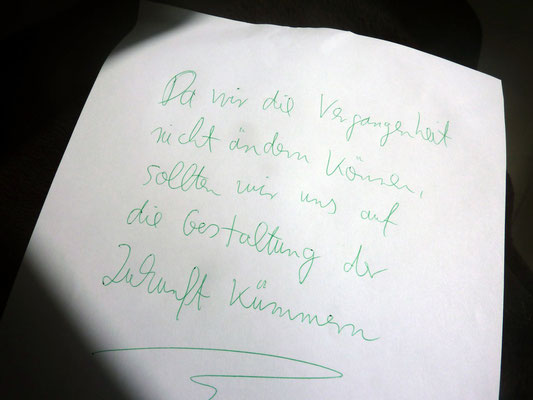 Da wir die Vergangenheit
nicht ändern Können,
sollten wir uns auf
die Gestaltung der
Zukunft Kümmern